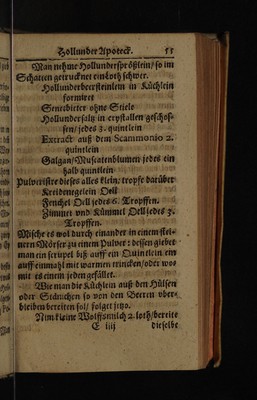 Hollunder Apoteck. 55
Man nehme Hollundersprößlein / so im
Schatten getrucknet ein Loth schwer.
Hollunderbeersteinlein in Küchlein
formiret
Senetbletter ohne Stiele
Hollundersaltz in crystallen geschos-
sen / jedes 3. quintlein
Extract auß dem Scammonio 2.
quintlein
Galgan / Muscatenblumen jedes ein
halb quintlein
Pulverisire dieses alles klein / tropfe darüber
Kreidenegelein Oell
Fenchel Oell jedes 6. Tropffen.
Zimmet und Kümmel Oell jedes 3.
Tropffen.
Mische es wol durch einander in einem stei-
nern Mörser zu einem Pulver: dessen giebet
man ein scrupel biß auff ein Quintlein ein
auff einmahl mit warmen trincken / oder wo-
mit es einem jeden gefället.
Wie man die Küchlein auß den Hülsen
oder so von den Beeren über-
bleiben bereiten sol / folget jetzo.
Nim kleine Wolffsmilch 2. loth / bereite
E iiij dieselbe